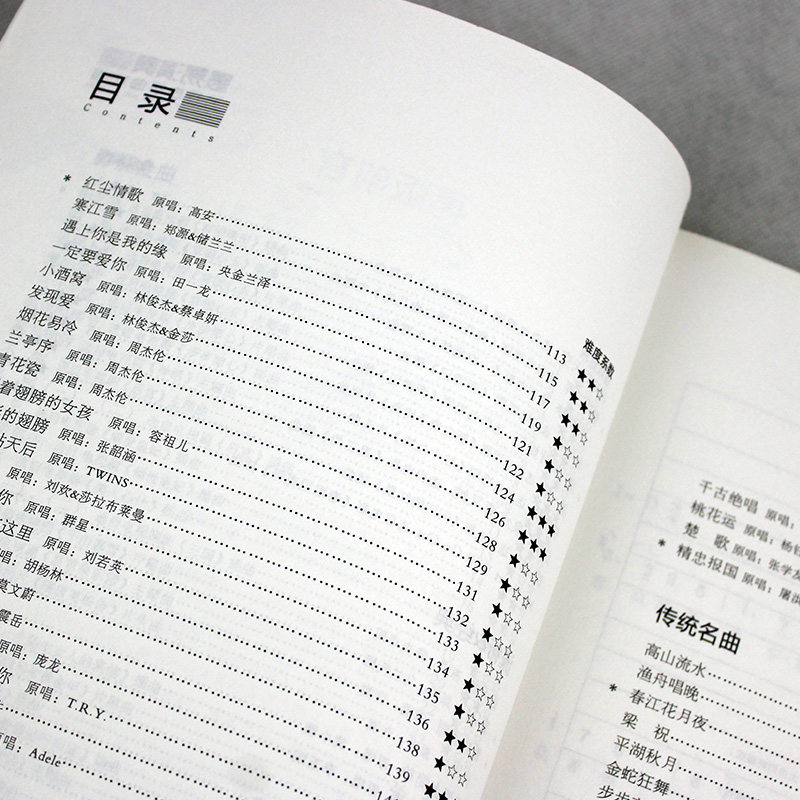 目录
Contents
难度系数
* 红尘情歌 原唱：高安 113 ★★☆
寒江雪 原唱：郑源&储兰兰 115 ★★☆
遇上你是我的缘 原唱：央金兰泽 117 ★★☆
一定要爱你 原唱：田一龙 119 ★☆☆
小酒窝 原唱：林俊杰&蔡卓妍 121 ★☆☆
发现爱 原唱：林俊杰&金莎 122 ★★★
烟花易冷 原唱：周杰伦 124 ★★★
兰亭序 原唱：周杰伦 126 ★☆☆
青花瓷 原唱：周杰伦 128 ★☆☆
着翅膀的女孩 原唱：容祖儿 129 ★☆☆
的翅膀 原唱：张韶涵 131 ★☆☆
天后 原唱：TWINS 132 ★☆☆
原唱：刘欢&莎拉布莱曼 133 ★☆☆
你 原唱：群星 134 ★☆☆
这里 原唱：刘若英 135 ★★☆
唱：胡杨林 136 ★☆☆
莫文蔚 138
震岳 139
原唱：庞龙
你 原唱：T.R.Y.
唱：Adele
千古绝唱 原唱：
桃花运 原唱：杨钰
楚 歌 原唱：张学友
* 精忠报国 原唱：屠洪
传统名曲
高山流水
渔舟唱晚
* 春江花月夜
梁 祝
平湖秋月
金蛇狂舞
步步